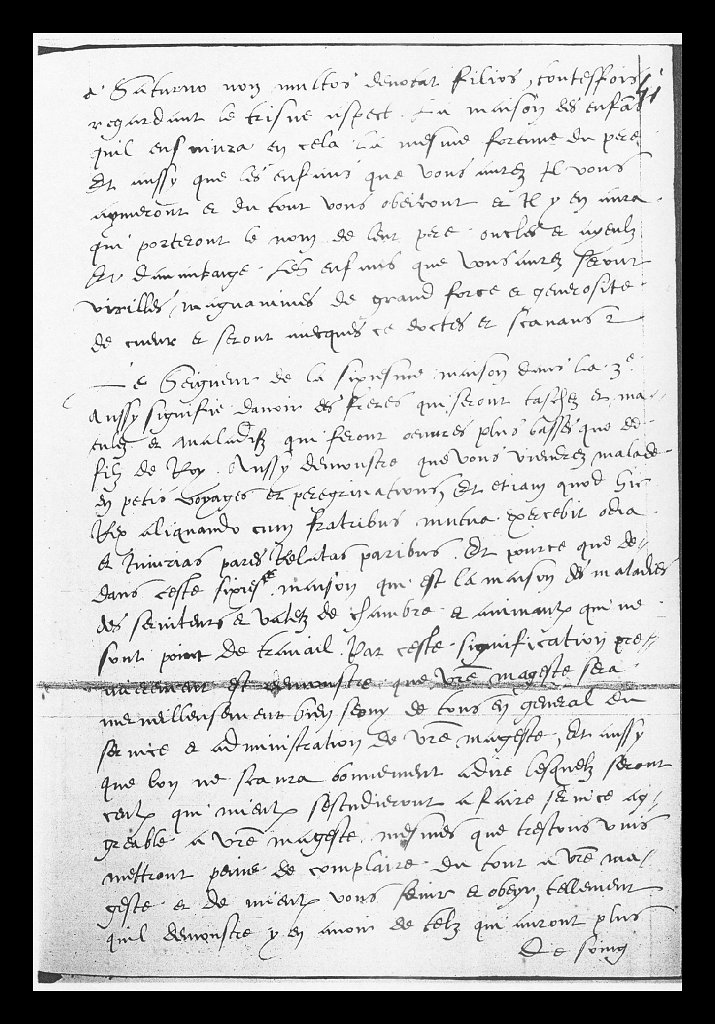 e Saturno non multos denotat filios, toutesfois
regardant le trisne aspect. La maison des enfās
quil ensuiura en cela la mesme fortune du pere
Et aussy que les enfans que vous aurez Il vous
aymeront et du tout vous obeiront et Il y en aura
qui porteront le nom de leur pere oncles et ayeulz
Et dauantaige. Les enfans que vous aurez seront
virilles, magnanimes de grand force et generosite
de cueur et seront auecques ce doctes et scauans
Le Seigneur de la sixiesme maison dans la 3e
Aussy signifie dauoir des freres qui seront tachez et ma-
culez et maladifz qui feront oeuures plus basses que de
filz de Roy. Aussy demonstre que vous viendrez malade
en petis voyages et peregrinations, Et etiam quod hic
Rex aliquando cum fratribus mutua exercebit odia
et Iniurias pares Relatas paribus. Et pource que de-
dans ceste sixiesme maison qui est la maison des maladies
des seruiteurs et valetz de chambre et animaulx qui ne
sont point de trauail. Par ceste signification pre-
mierement est demonstre que vr̄e mageste sera
merueilleusement bien seruy de tous en general du
seruice et administration de vr̄e mageste, Et aussy
que lon ne scaura bonnement a dire lesquelz seront
ceulx qui mieulx sestudieront a faire seruice ag-
greable a vr̄e mageste mesmes que trestous unis
mettront peine de complaire du tout a vr̄e ma-
geste et de mieulx vous seruir et obeyr, tellement
quil demonstre y en auoir de telz qui auront plus
De soing